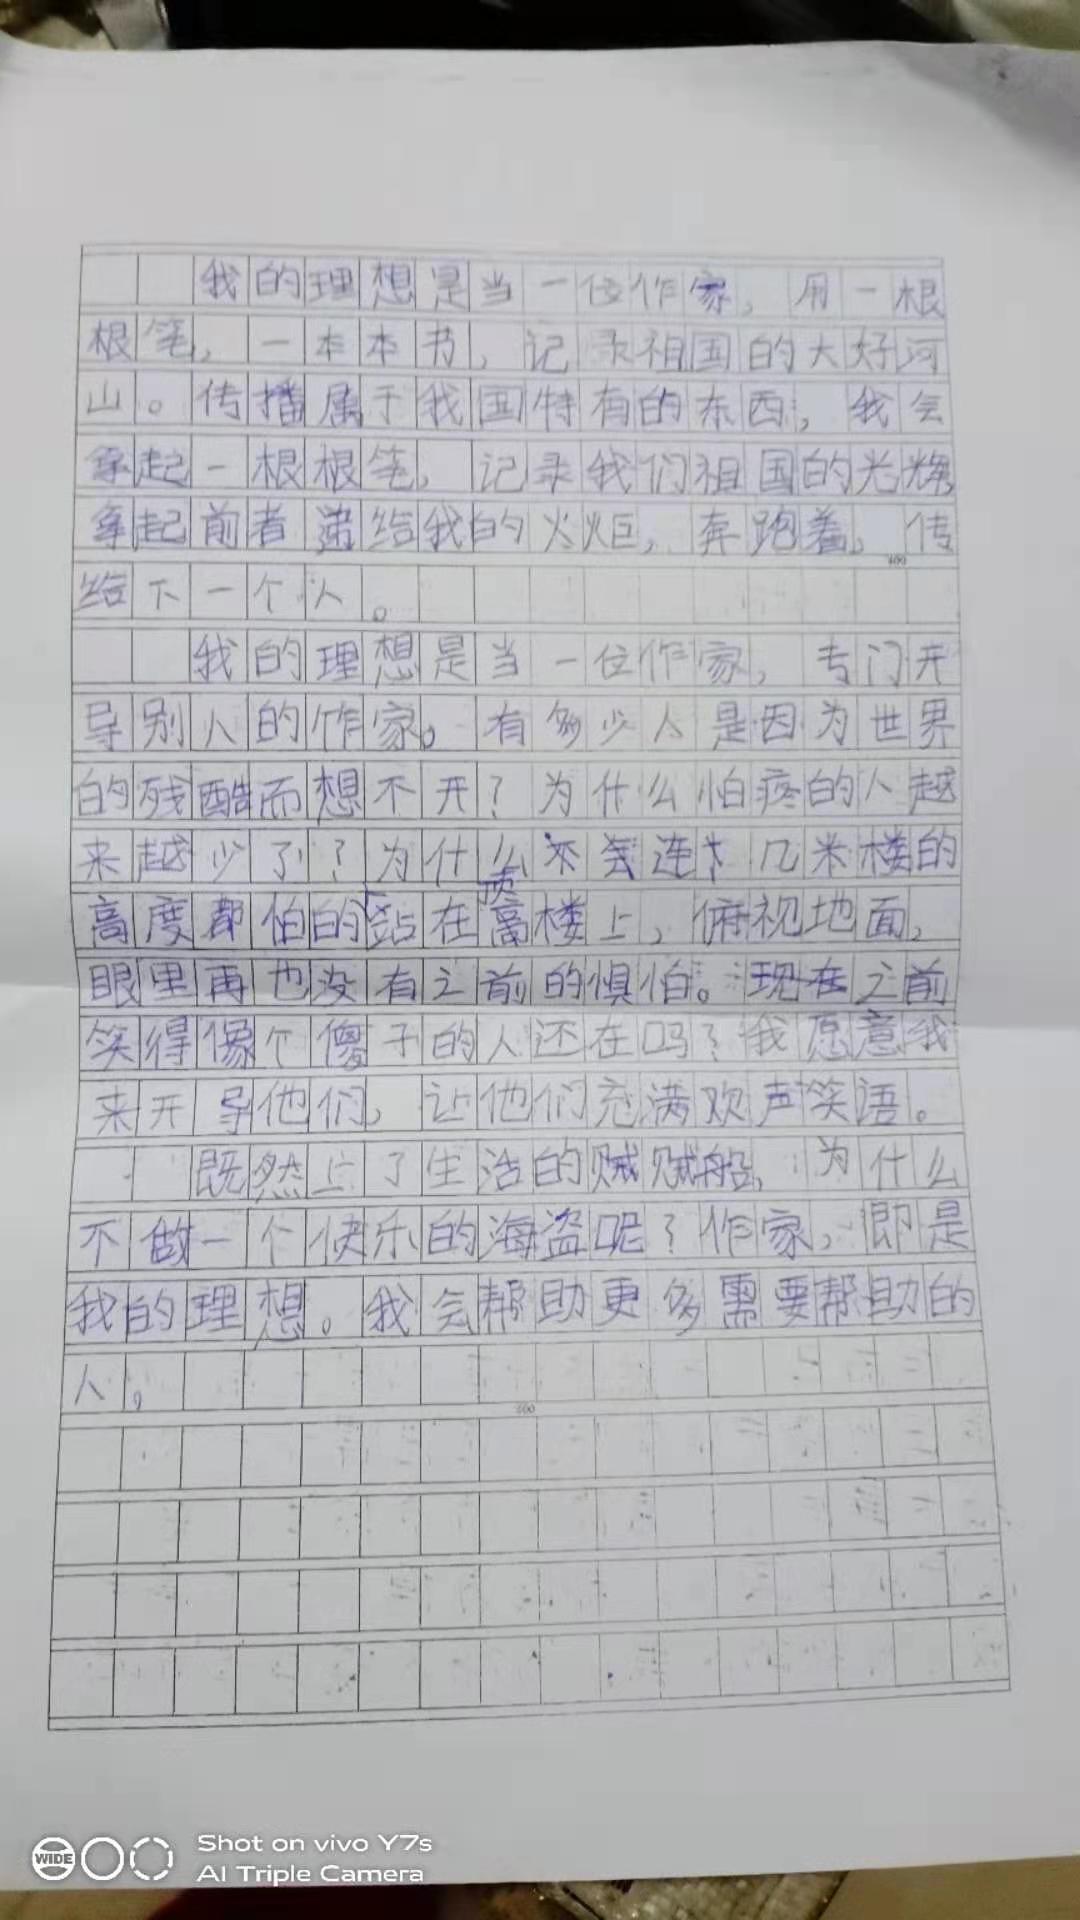 我的理想是当一位作家，用一根
根笔，一本本书，记录祖国的大好河
山。传播属于我国特有的东西，我会
拿起一根根笔，记录我们祖国的光辉，
拿起前者递给我的火炬，奔跑着，传
400
给下一个人。
我的理想是当一位作家，专门开
导别人的作家。有多少人是因为世界
的残酷而想不开？为什么怕疼的人越
来越少了？为什么 连 几米楼的
高度都怕的站在高楼顶上，俯视地面，
眼里再也没有之前的惧怕。现在之前
笑得像个傻子的人还在吗？我愿意我
来开导他们，让他们充满欢声笑语。
既然上了生活的贼贼船，为什么
不做一个快乐的海盗呢？作家，即是
我的理想。我会帮助更多需要帮助的
人。
WIDE
Shot on vivo Y7s
AI Triple Camera